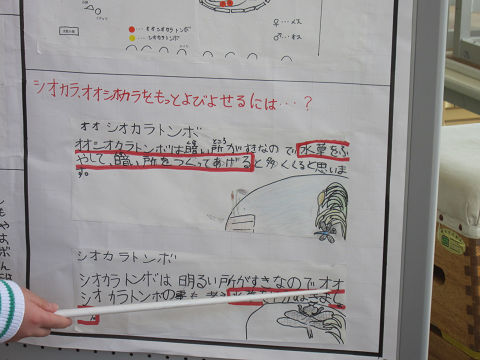 ●…オオシオカラトンボ
●…シオカラトンボ
♀…メス
♂…オス
シオカラ、オオシオカラをもっとよびよせるには…？
オオシオカラトンボ
オオシオカラトンボは暗い所がすきなので水草をふ
やして、暗い所をつくってあげると多くくると思いま
す。
シオカラトンボ
シオカラトンボは明るい所がすきなのでオオ
シオカラトンボの